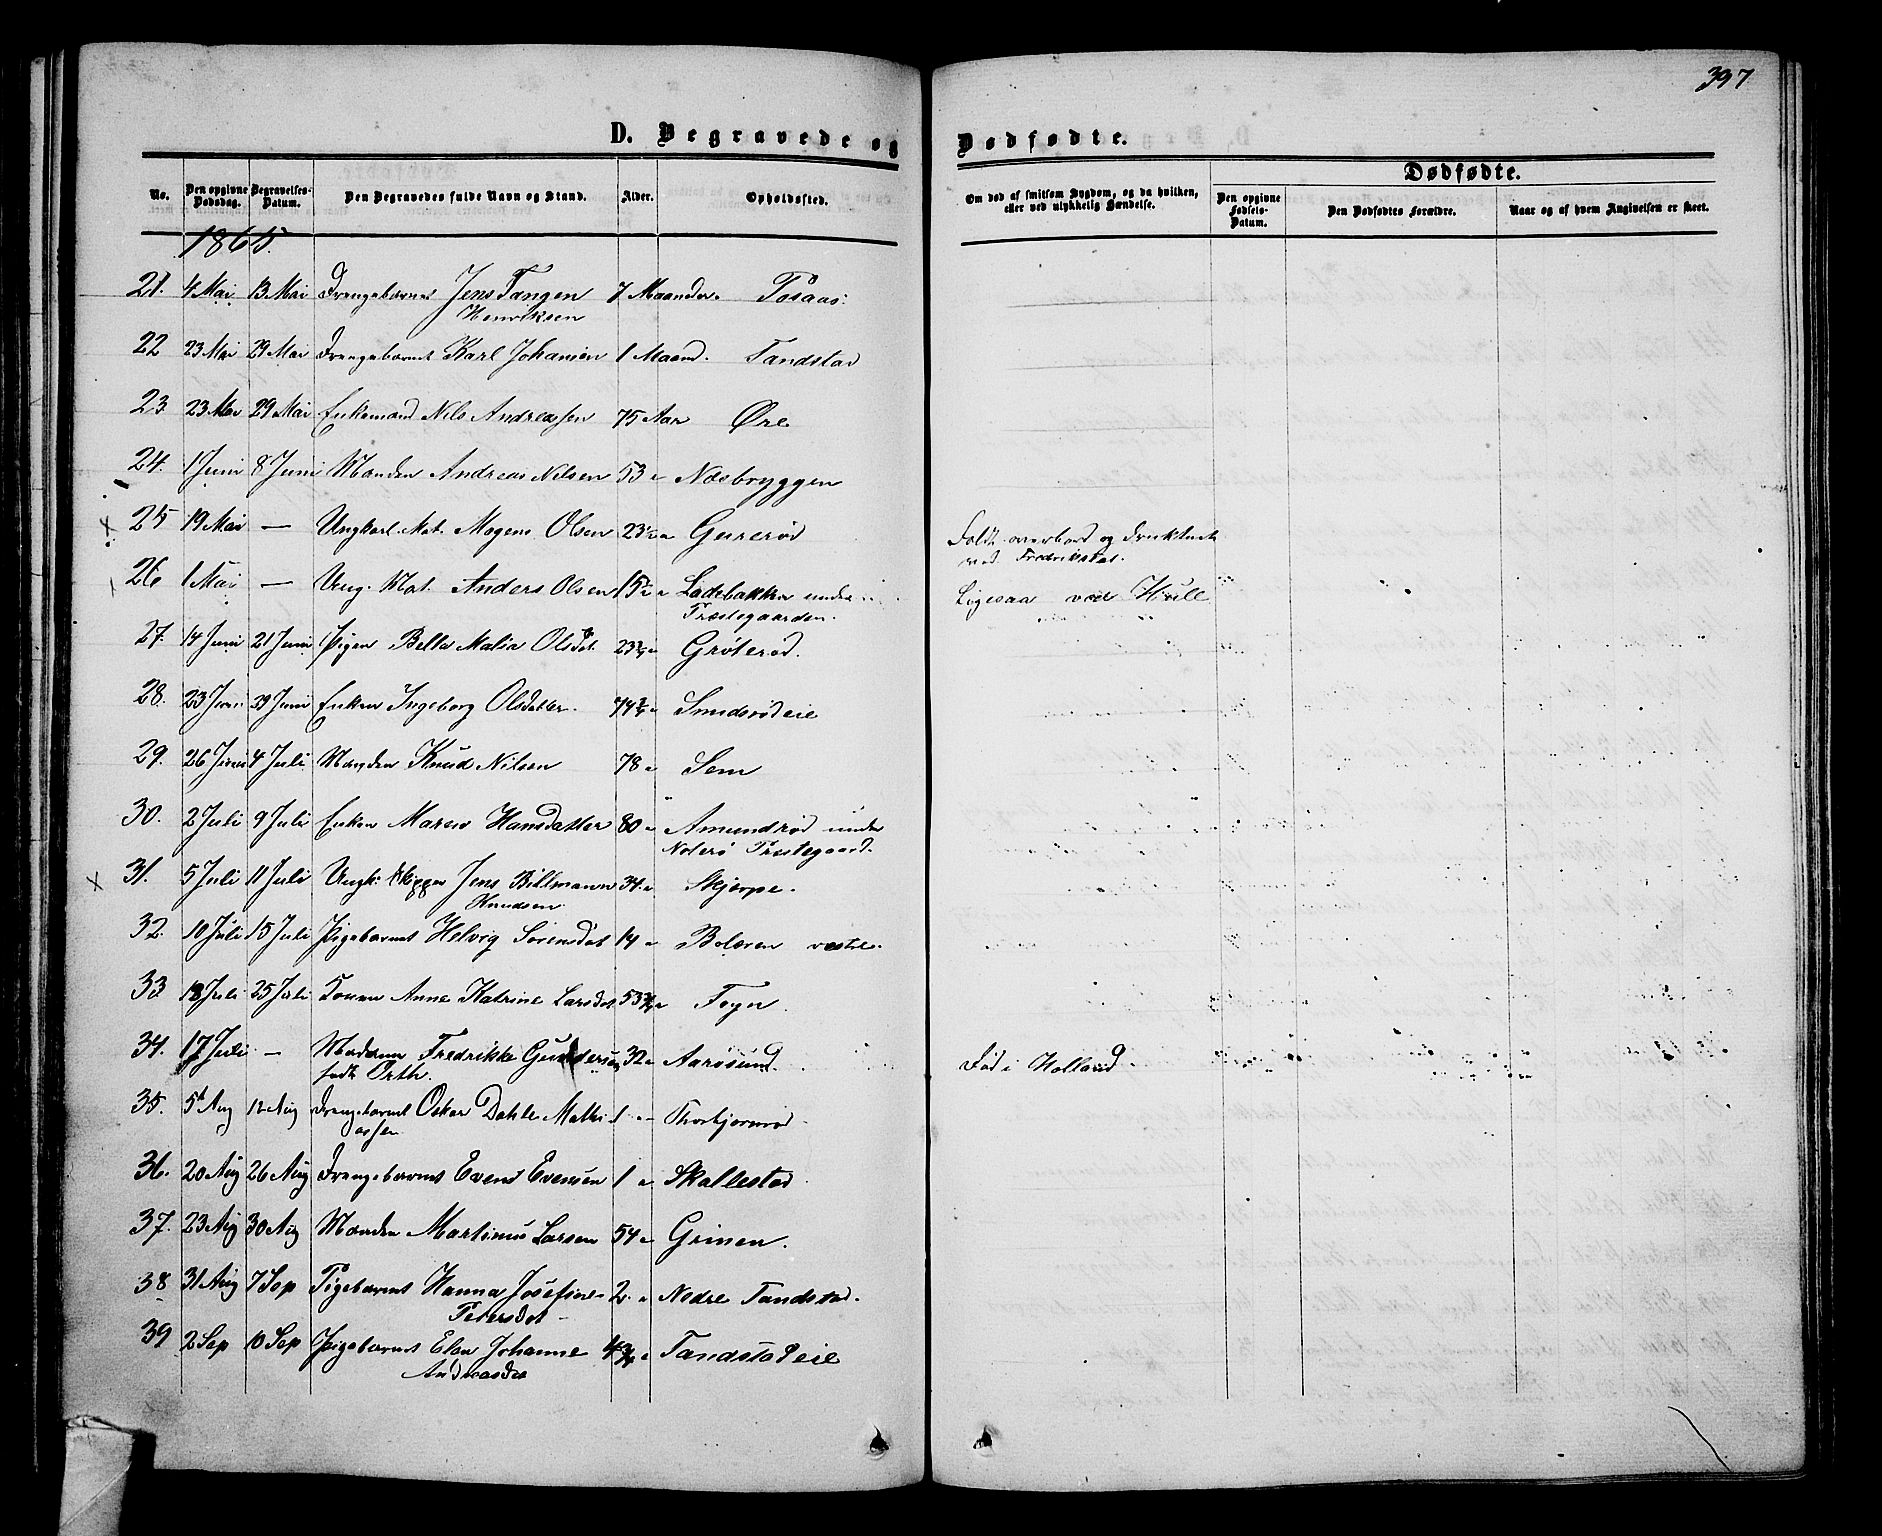 397
D. Begravede og Dødfødte.
No. Den opgivne Dødsdag. Begravelses-Datum. Den Begravedes fulde Navn og Stand. Alder. Opholdssted. Om død af smitsom Sygdom, og da hvilken, eller ved ulykkelig Hændelse. Dødfødte. Den opgivne Fødsels-Datum. Den Dødfødtes Forældre. Naar og af hvem Angivelsen er skeet.
1865.
21. 4 Mai 13 Mai Drengebarnet Jens Tangen 7 Maander.
Henriksen
22 23 Mai 29 Mai Drengebarnet Karl Johansen 1 Maand. Tandstad
23. 23 Mai 29 Mai Enkemand Nils Andreassen 75 Aar Øre
24. 1 Juni 8 Juni Manden Andreas Nilsen 53 " Næsbryggen
25 19 Mai — Ungkarl Mat. Mogens Olsen 23½ " Gurerød Faldt overbord og druknede
ved Fredrikstad.
26 1 Mai — Ung. Mat. Anders Olsen 15½ " Ladebakken under Ligesaa ved Hull
Præstegaarden.
27. 14 Juni 21 Juni Pigen Bella Malia Olsdt. 23¾ " Grøterød.
28. 23 Juni 29 Juni Enken Ingeborg Olsdatter. 74¾ " Smidsrødeie
29. 26 Juni 4 Juli Manden Knud Nilsen 78 " Sem
30. 2 Juli 9 Juli Enken Maren Hansdatter 80 " Amundrød under
Noterø Præstegaard.
31. 5 Juli 11 Juli Ungk. Skipper Jens Billmann 34 " Skjerpe.
Knudsen
32. 10 Juli 15 Juli Pigebarnet Helvig Sørensdat 14 " Bolæren vestre.
33 18 Juli 25 Juli Konen Anne Katrine Larsdat. 53¾ " Føyn
34. 17 Juli — Madame Fredrikke Gundersen 32 " Aarøsund. Død i Holland
født Orth.
35. 5 Aug 12 Aug Drengebarnet Oskar Dahle Mathi 1 " Thorbjørnrød
assen
36. 20 Aug 26 Aug Drengebarnet Evend Evensen 1 " Skallestad
37. 23 Aug 30 Aug Manden Martinus Larsen 54 " Grinen.
38 31 Aug 7 Sep Pigebarnet Hanna Josefine 2 " Nedre Tandstad.
Petersdat
39 2 Sep 10 Sep Pigebarnet Elen Johanne 4¾ " Tandstad eie
Andreasdat